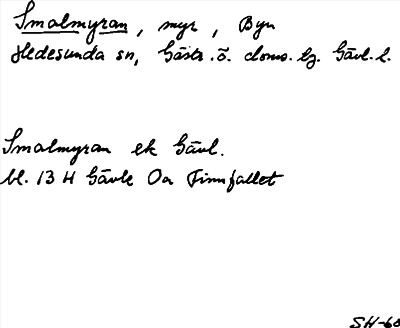 Smalmyran, myr, Byn
Hedesunda sn, Gästr. ö. doms. hg. Gävl. l.
Smalmyran ek Gävl.
bl. 13 H Gävle Oa Finnfallet
SH-60